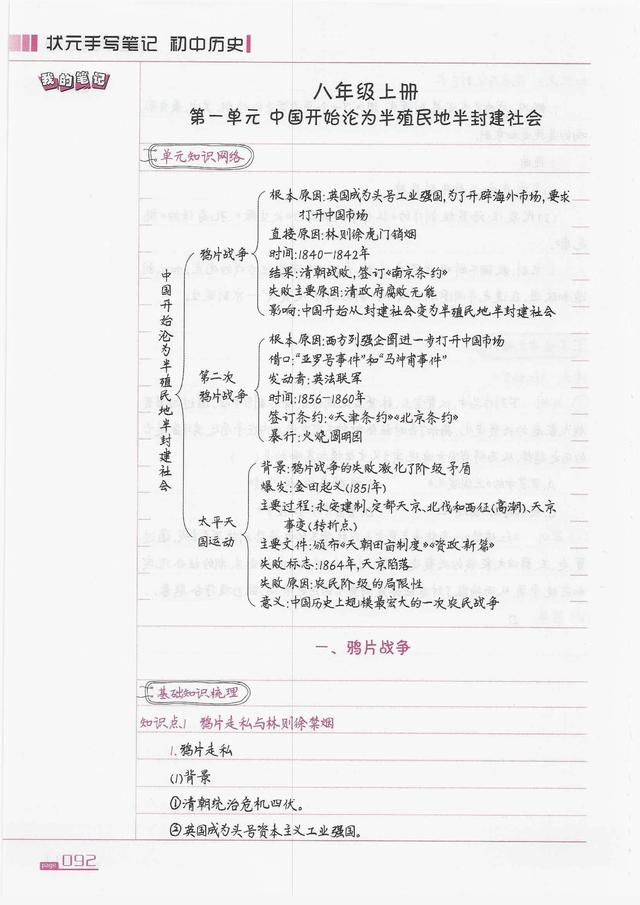 状元手写笔记 初中历史
我的笔记
八年级上册
第一单元 中国开始沦为半殖民地半封建社会
单元知识网络
中国开始沦为半殖民地半封建社会
鸦片战争
根本原因:英国成为头号工业强国,为了开辟海外市场,要求
打开中国市场
直接原因:林则徐虎门销烟
时间:1840—1842年
结果:清朝战败,签订《南京条约》
失败主要原因:清政府腐败无能
影响:中国开始从封建社会变为半殖民地半封建社会
第二次
鸦片战争
根本原因:西方列强企图进一步打开中国市场
借口:“亚罗号事件”和“马神甫事件”
发动者:英法联军
时间:1856—1860年
签订条约:《天津条约》《北京条约》
暴行:火烧圆明园
太平天
国运动
背景:鸦片战争的失败激化了阶级矛盾
爆发:金田起义(1851年)
主要过程:永安建制、定都天京、北伐和西征(高潮)、天京
事变(转折点)
主要文件:颁布《天朝田亩制度》《资政新篇》
失败标志:1864年,天京陷落
失败原因:农民阶级的局限性
意义:中国历史上规模最宏大的一次农民战争
一、鸦片战争
基础知识梳理
知识点1 鸦片走私与林则徐禁烟
1.鸦片走私
(1)背景
①清朝统治危机四伏。
②英国成为头号资本主义工业强国。
page 092